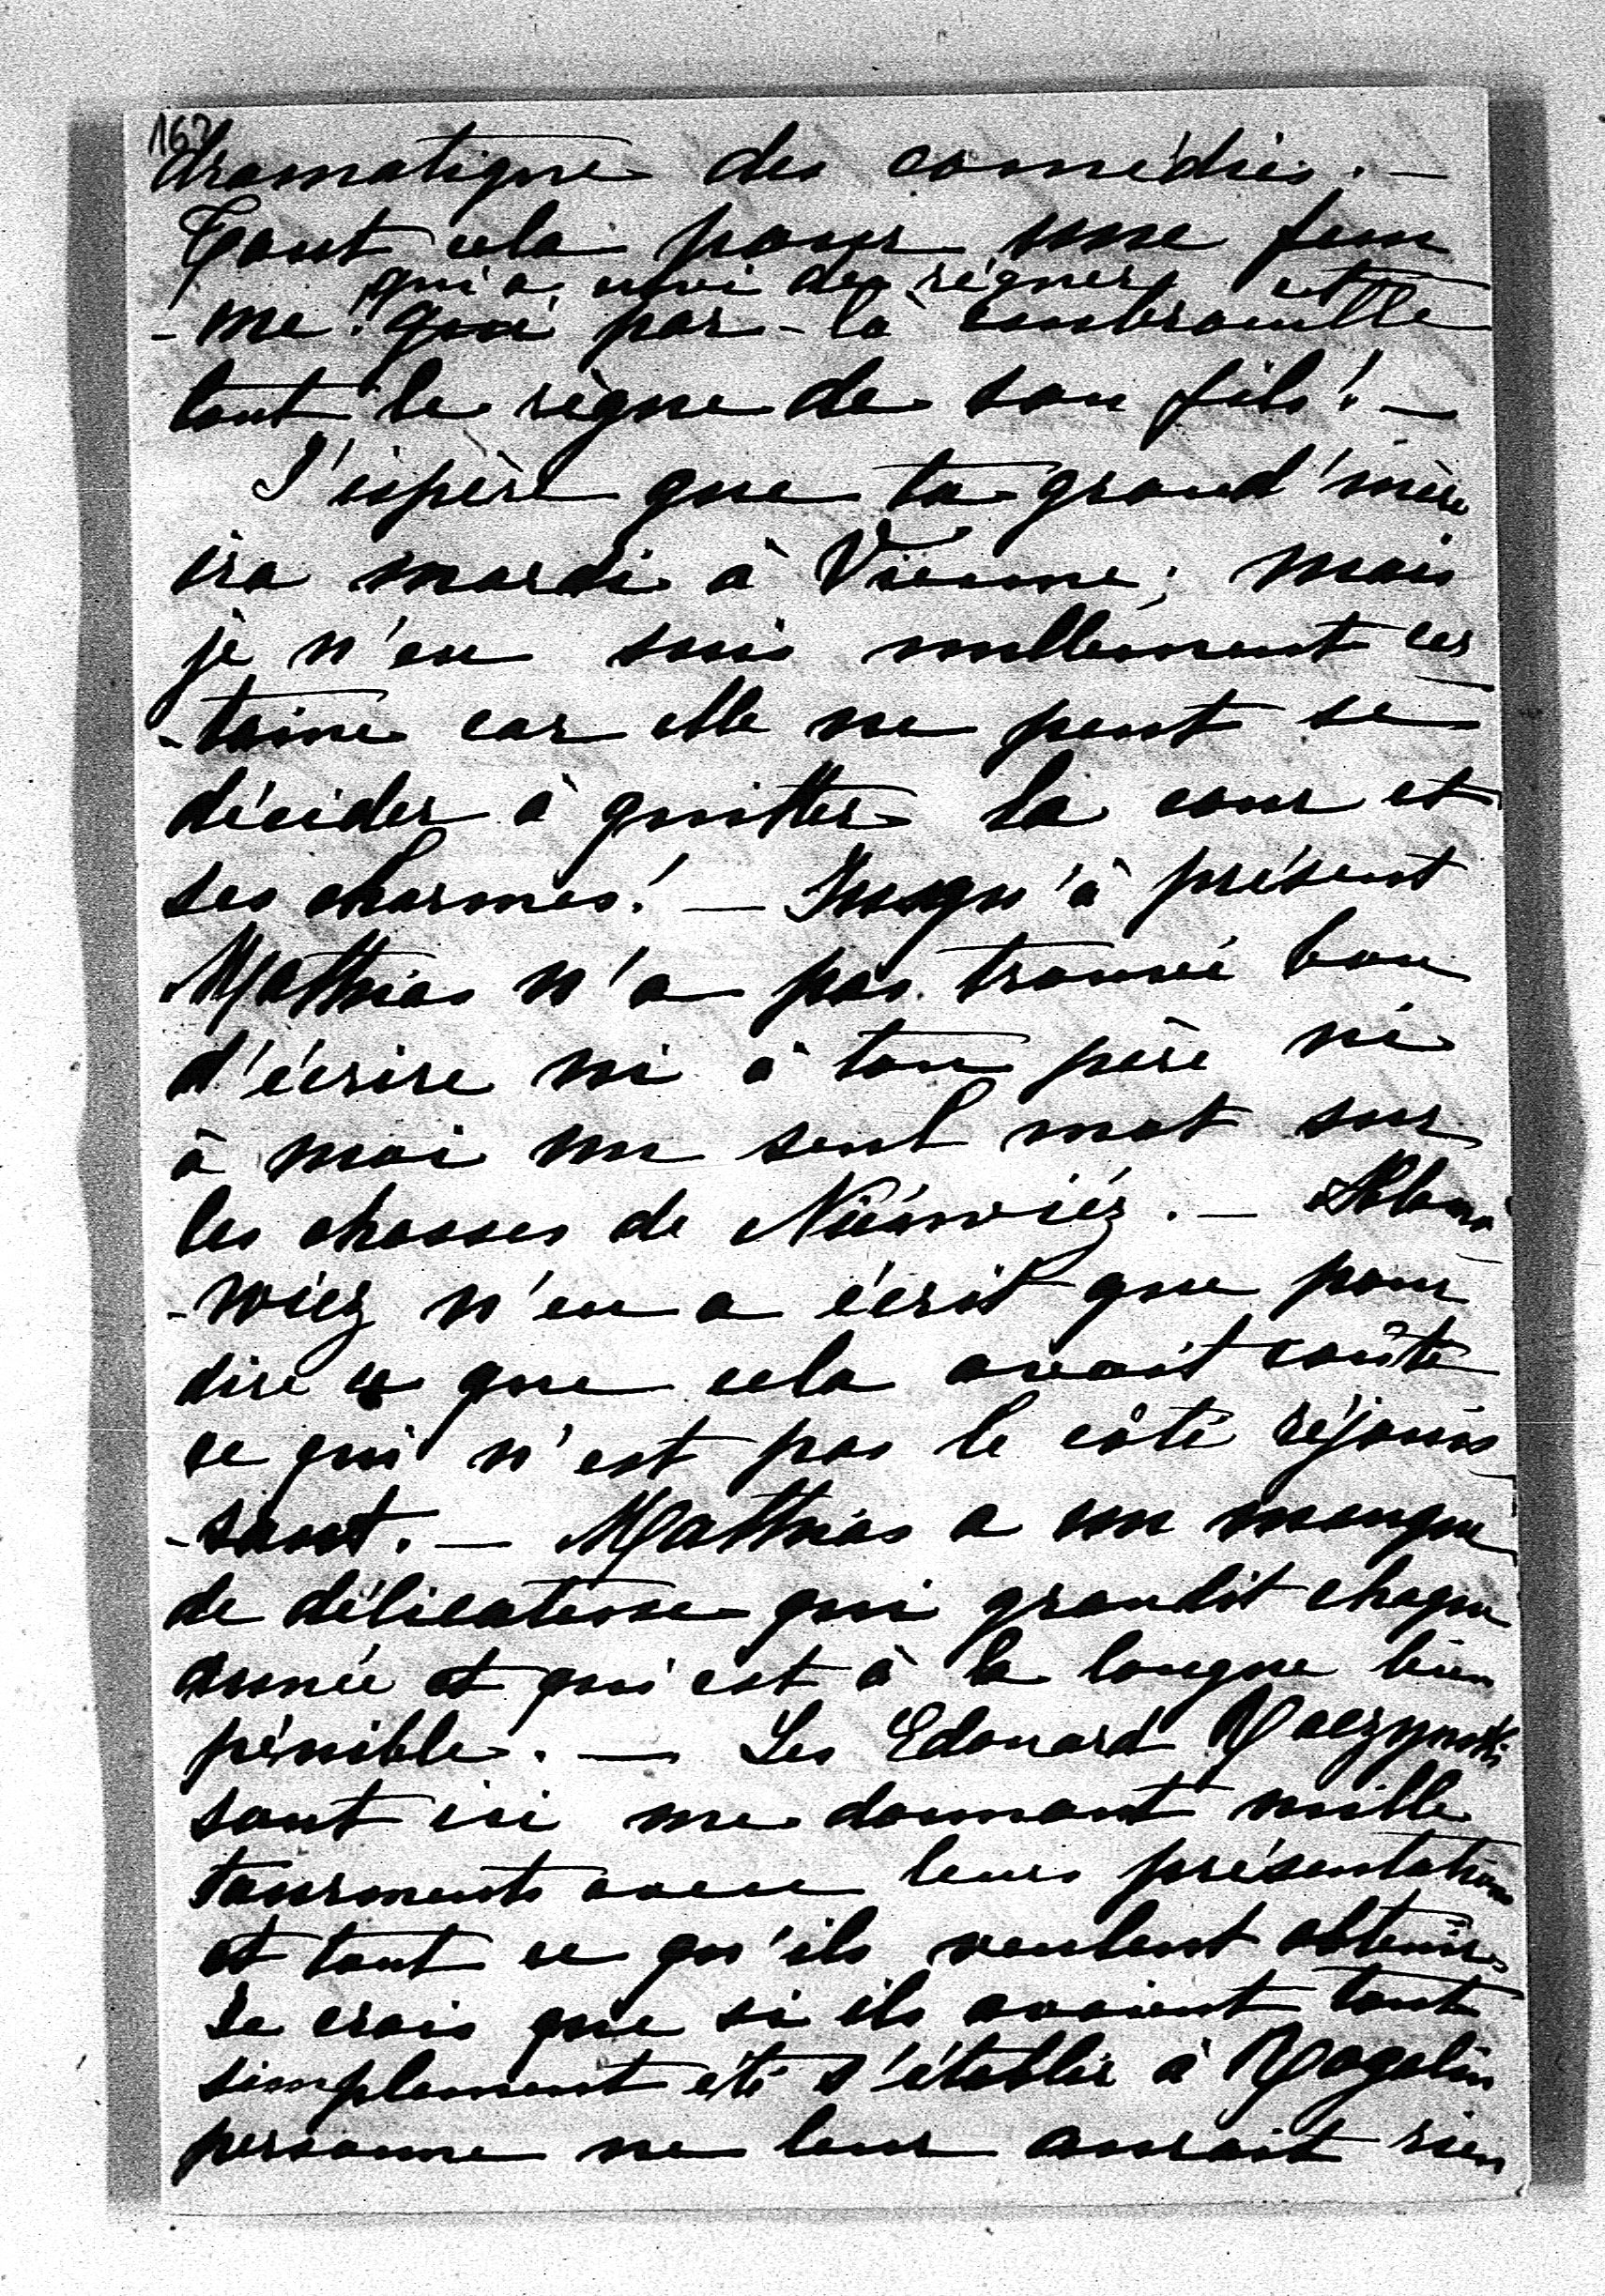 162
dramatique des comédies. —
Tout cela pour une fem
qui a envi de régner et
-me qui par-là embrouille
tout le règne de son fils! —
J'espère que ta grand'mère
ira mardi à Vienne; mais
je n'en suis nullement cer
-taine car elle ne peut se
décider à quitter la cour et
ses charmes! — Jusqu'à présent
Mathias n'a pas trouvé bon
d'écrire ni à ton père ni
à moi un seul mot sur
les chasses de Niéswiéz. —
-wiez n'en a écrit que pour
dire ce que cela avait coûté
ce qui n'est pas le côté réjouis
-sant. — Mathias a un manque
de délicatesse qui grandit chaque
année et qui est à la longue bien
pénible. — Les Edouard Raczynski
sont ici me donnant mille
tourments avec leurs présentations
et tout ce qu'ils veulent obtenir.
Je crois que si ils avaient tout
simplement été s'établir à Rogalin
personne ne leur aurait rien